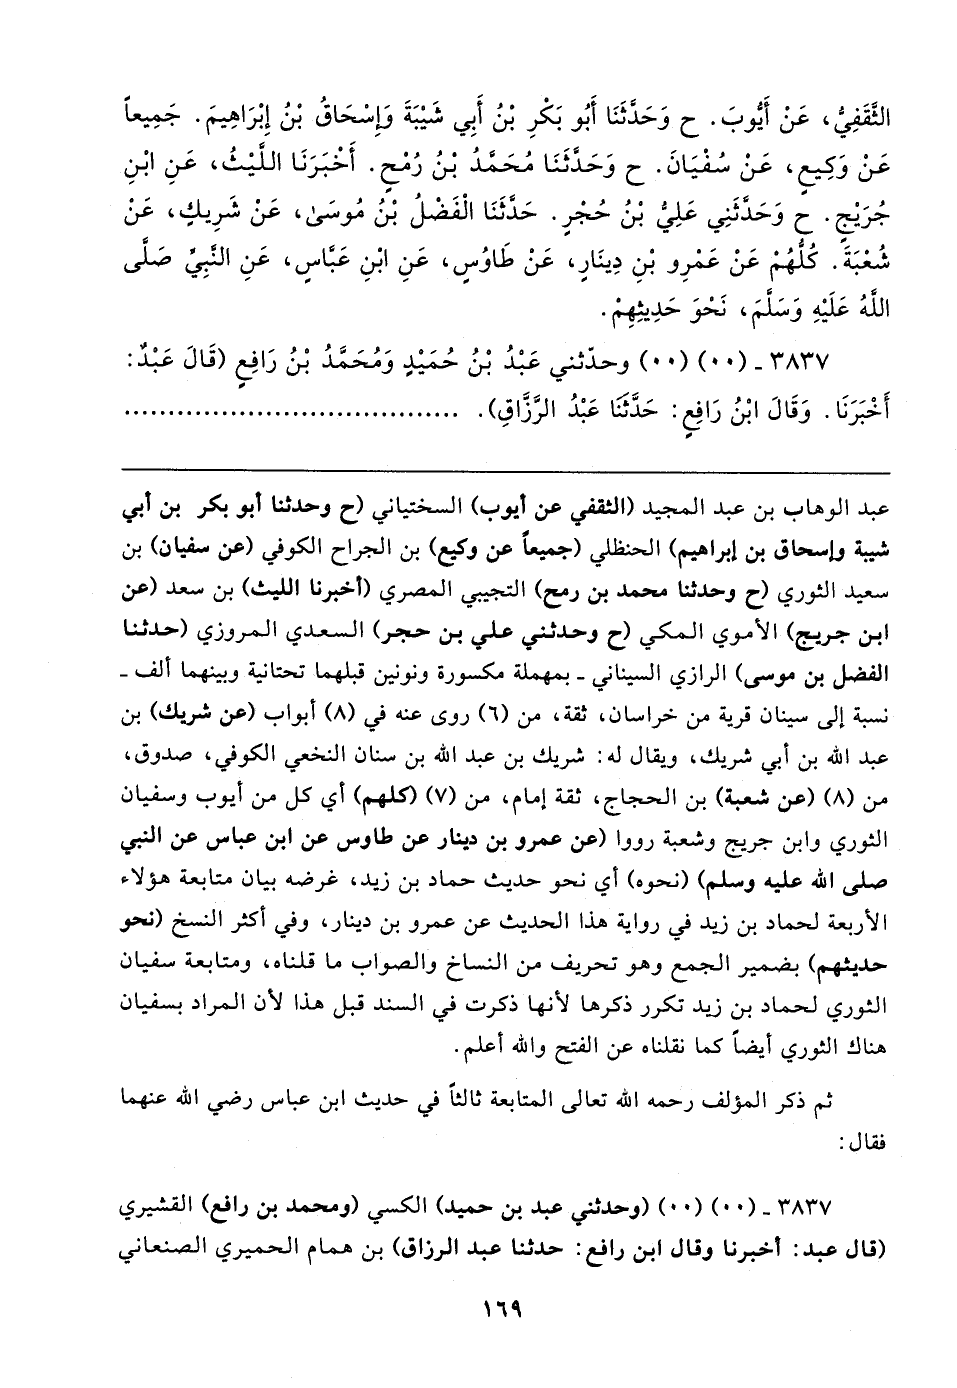 الثَّقَفِيُّ، عَنْ أَيُّوبَ. ح وَحَدَّثَنَا أَبُو بَكْرِ بْنُ أَبِي شَيْبَةَ وَإِسْحَاقُ بْنُ إِبْرَاهِيمَ. جَمِيعاً
عَنْ وَكِيعٍ، عَنْ سُفْيَانَ. ح وَحَدَّثَنَا مُحَمَّدُ بْنُ رُمْحٍ. أَخْبَرَنَا اللَّيْثُ، عَنِ ابْنِ
جُرَيْجٍ. ح وَحَدَّثَنِي عَلِيُّ بْنُ حُجْرٍ. حَدَّثَنَا الْفَضْلُ بْنُ مُوسَىٰ، عَنْ شَرِيكٍ، عَنْ
شُعْبَةَ. كُلُّهُمْ عَنْ عَمْرِو بْنِ دِينَارٍ، عَنْ طَاوُسٍ، عَنِ ابْنِ عَبَّاسٍ، عَنِ النَّبِيِّ صَلَّى
اللَّهُ عَلَيْهِ وَسَلَّمَ، نَحْوَ حَدِيثِهِمْ.
٣٨٣٧ ـ (٠٠) (٠٠) وحدّثني عَبْدُ بْنُ حُمَيْدٍ وَمُحَمَّدُ بْنُ رَافِعٍ (قَالَ عَبْدٌ:
أَخْبَرَنَا. وَقَالَ ابْنُ رَافِعٍ: حَدَّثَنَا عَبْدُ الرَّزَّاقِ). .....................................
عبد الوهاب بن عبد المجيد (الثقفي عن أيوب) السختياني (ح وحدثنا أبو بكر بن أبي
شيبة وإسحاق بن إبراهيم) الحنظلي (جميعاً عن وكيع) بن الجراح الكوفي (عن سفيان) بن
سعيد الثوري (ح وحدثنا محمد بن رمح) التجيبي المصري (أخبرنا الليث) بن سعد (عن
ابن جريج) الأموي المكي (ح وحدثني علي بن حجر) السعدي المروزي (حدثنا
الفضل بن موسى) الرازي السيناني ـ بمهملة مكسورة ونونين قبلهما تحتانية وبينهما ألف ـ
نسبة إلى سينان قرية من خراسان، ثقة، من (٦) روى عنه في (٨) أبواب (عن شريك) بن
عبد الله بن أبي شريك، ويقال له: شريك بن عبد الله بن سنان النخعي الكوفي، صدوق،
من (٨) (عن شعبة) بن الحجاج، ثقة إمام، من (٧) (كلهم) أي كل من أيوب وسفيان
الثوري وابن جريج وشعبة رووا (عن عمرو بن دينار عن طاوس عن ابن عباس عن النبي
صلى الله عليه وسلم) (نحوه) أي نحو حديث حماد بن زيد، غرضه بيان متابعة هؤلاء
الأربعة لحماد بن زيد في رواية هذا الحديث عن عمرو بن دينار، وفي أكثر النسخ (نحو
حديثهم) بضمير الجمع وهو تحريف من النساخ والصواب ما قلناه، ومتابعة سفيان
الثوري لحماد بن زيد تكرر ذكرها لأنها ذكرت في السند قبل هذا لأن المراد بسفيان
هناك الثوري أيضاً كما نقلناه عن الفتح والله أعلم.
ثم ذكر المؤلف رحمه الله تعالى المتابعة ثالثاً في حديث ابن عباس رضي الله عنهما
فقال:
٣٨٣٧ ـ (٠٠) (٠٠) (وحدثني عبد بن حميد) الكسي (ومحمد بن رافع) القشيري
(قال عبد: أخبرنا وقال ابن رافع: حدثنا عبد الرزاق) بن همام الحميري الصنعاني
١٦٩